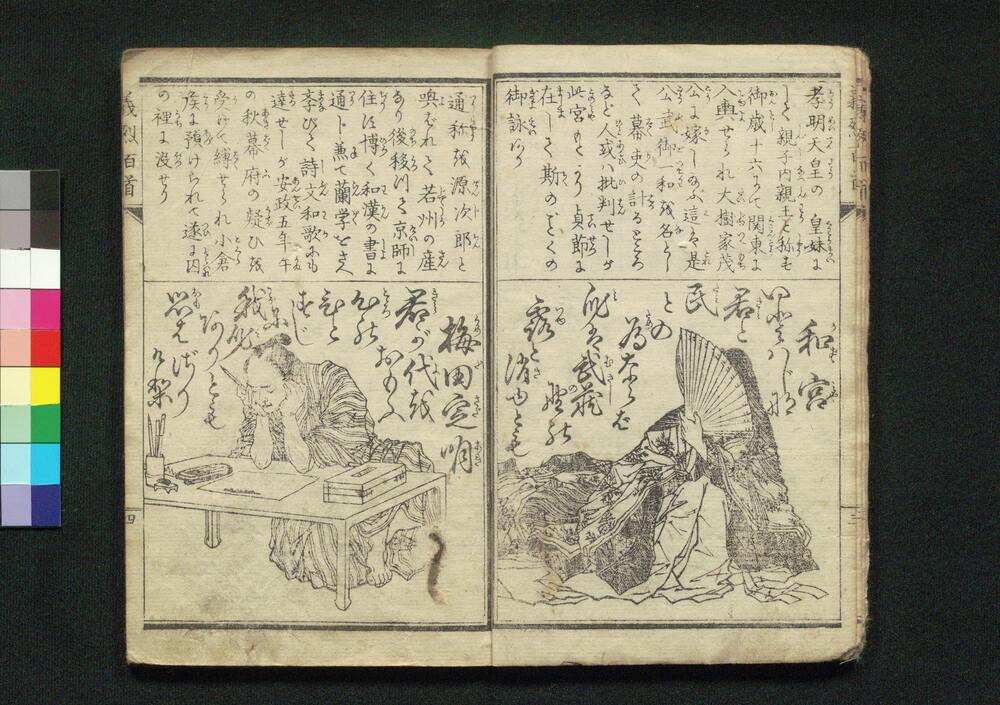 孝明天皇の皇妹に
して親子内親王と称し
御歳十六にて関東に
入輿せられ大樹家茂
公に嫁し給ふ這は是
公武御一和を名とし
て幕吏の計るところ
など人或は批判せしが
此宮にはより貞節に
在して斯のごとくの
御詠あり
和宮
惜しまじな
君と
民
との
為ならば
身は武蔵
野の
露と消ゆとも
通称を源次郎と
呼ばれて若州の産
なり後移りて京師に
住し博く和漢の書に
通じ兼て蘭学をさへ
学びて詩文和歌にも
達せしが安政五年午
の秋幕府の疑ひを
受けて縛せられ小倉
侯に預けられて遂に囚
の裡に没せり
梅田定明
君が代を
おもふ
心の
ひと
すじに
我身
ありとも
思はざり
けり
義烈百首
四